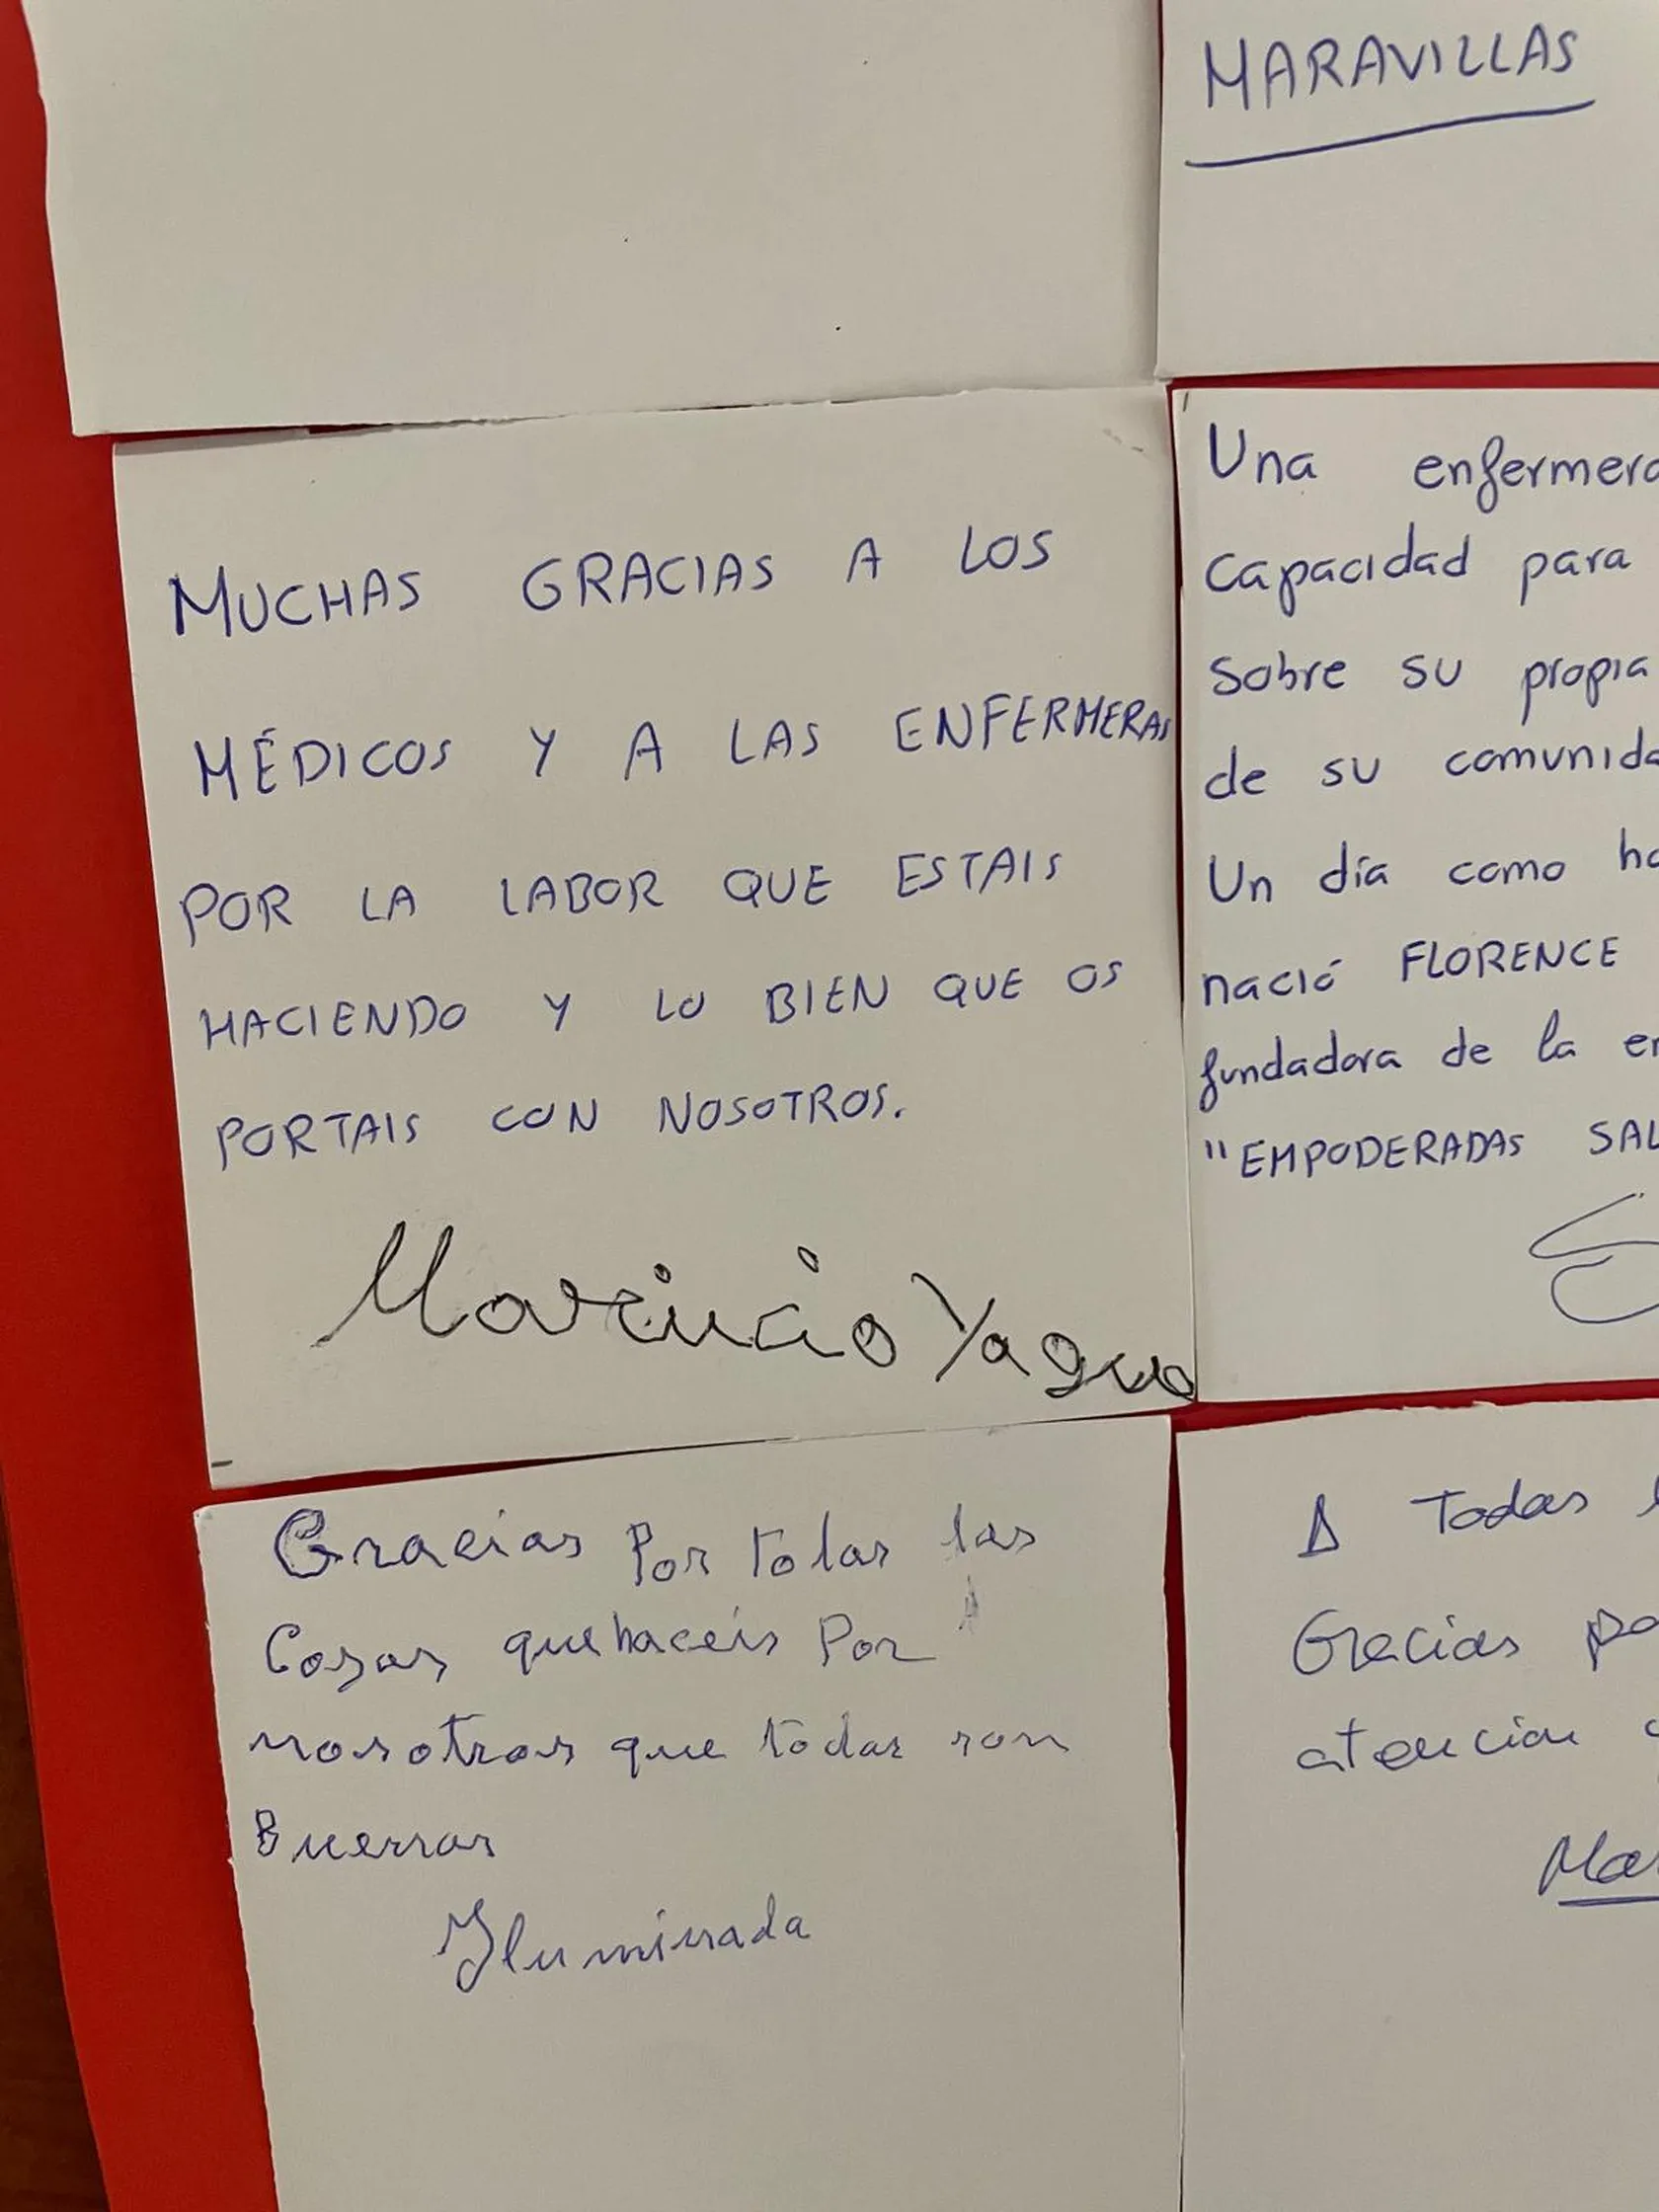 MARAVILLAS
MUCHAS GRACIAS A LOS
MÉDICOS Y A LAS ENFERMERAS
POR LA LABOR QUE ESTAIS
HACIENDO Y LO BIEN QUE OS
PORTAIS CON NOSOTROS.
Yague
Una enfermera
capacidad para
sobre su propia
de su comunida
Un día como ho
nació FLORENCE
fundadora de la en
"EMPODERADAS SAL
Gracias Por todas las
Cosas que haceis Por
nosotras que todas son
Buenas
Iluminada
A Todas l
Gracias po
atencion
Mar